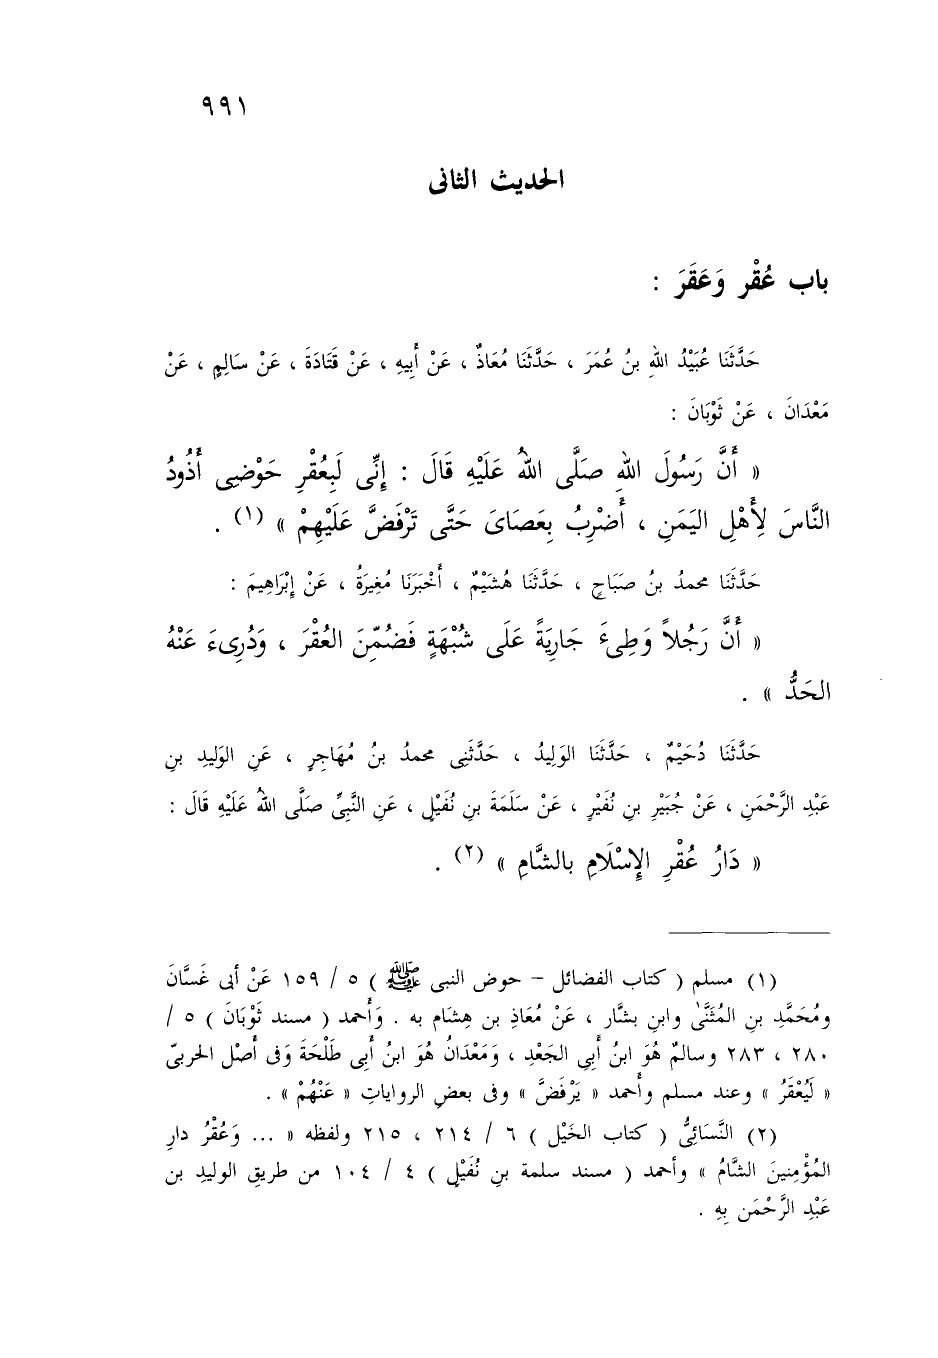 ٩٩١
الحديث الثانى
باب عُقْر وَعَقَرَ :
حَدَّثَنَا عُبَيْدُ اللهِ بنُ عُمَرَ ، حَدَّثَنَا مُعَاذٌ ، عَنْ أَبِيهِ ، عَنْ قَتَادَةَ ، عَنْ سَالِمٍ ، عَنْ
مَعْدَانَ ، عَنْ ثَوْبَانَ :
« أَنَّ رَسُولَ اللهِ صَلَّى اللهُ عَلَيْهِ قَالَ : إِنِّى لَبِعُقْرِ حَوْضِى أَذُودُ
النَّاسَ لِأَهْلِ اليَمَنِ ، أَضْرِبُ بِعَصَاىَ حَتَّى تَرْفَضَّ عَلَيْهِمْ » (١) .
حَدَّثَنَا محمدُ بنُ صَبَاحٍ ، حَدَّثَنَا هُشَيْمٌ ، أَخْبَرَنَا مُغِيرَةُ ، عَنْ إِبْرَاهِيمَ :
« أَنَّ رَجُلاً وَطِىءَ جَارِيَةً عَلَى شُبْهَةٍ فَضُمِّنَ العُقْرَ ، وَدُرِىءَ عَنْهُ
الحَدُّ » .
حَدَّثَنَا دُحَيْمٌ ، حَدَّثَنَا الوَلِيدُ ، حَدَّثَنِى محمدُ بنُ مُهَاجِرٍ ، عَنِ الوَلِيدِ بنِ
عَبْدِ الرَّحْمَنِ ، عَنْ جُبَيْرِ بنِ نُفَيْرٍ ، عَنْ سَلَمَةَ بنِ نُفَيْلٍ ، عَنِ النَّبِىِّ صَلَّى اللهُ عَلَيْهِ قَالَ :
« دَارُ عُقْرِ الإِسْلَامِ بالشَّامِ » (٢) .
(١) مسلم ( كتاب الفضائل – حوض النبى ﷺ ) ٥ / ١٥٩ عَنْ أبى غَسَّانَ
ومُحَمَّدِ بنِ المُثَنَّىٰ وابنِ بشَّار ، عَنْ مُعَاذِ بن هِشَام به . وَأَحمد ( مسند ثَوْبَانَ ) ٥ /
٢٨٠ ، ٢٨٣ وسالمٌ هُوَ ابنُ أَبِى الجَعْدِ ، وَمَعْدَانُ هُوَ ابنُ أَبِى طَلْحَةَ وَفى أَصْل الحربىّ
« لَيُعْقَرُ » وعند مسلم وأَحمد « يَرْفَضَّ » وفى بعضِ الرواياتِ « عَنْهُمْ » .
(٢) النَّسَائِىُّ ( كتاب الخَيْل ) ٦ / ٢١٤ ، ٢١٥ ولفظه « ... وَعُقْرُ دارِ
المُؤْمِنينَ الشَّامُ » وأحمد ( مسند سلمة بنِ نُفَيْلٍ ) ٤ / ١٠٤ من طريقِ الوليدِ بن
عَبْدِ الرَّحْمَن بِهِ .